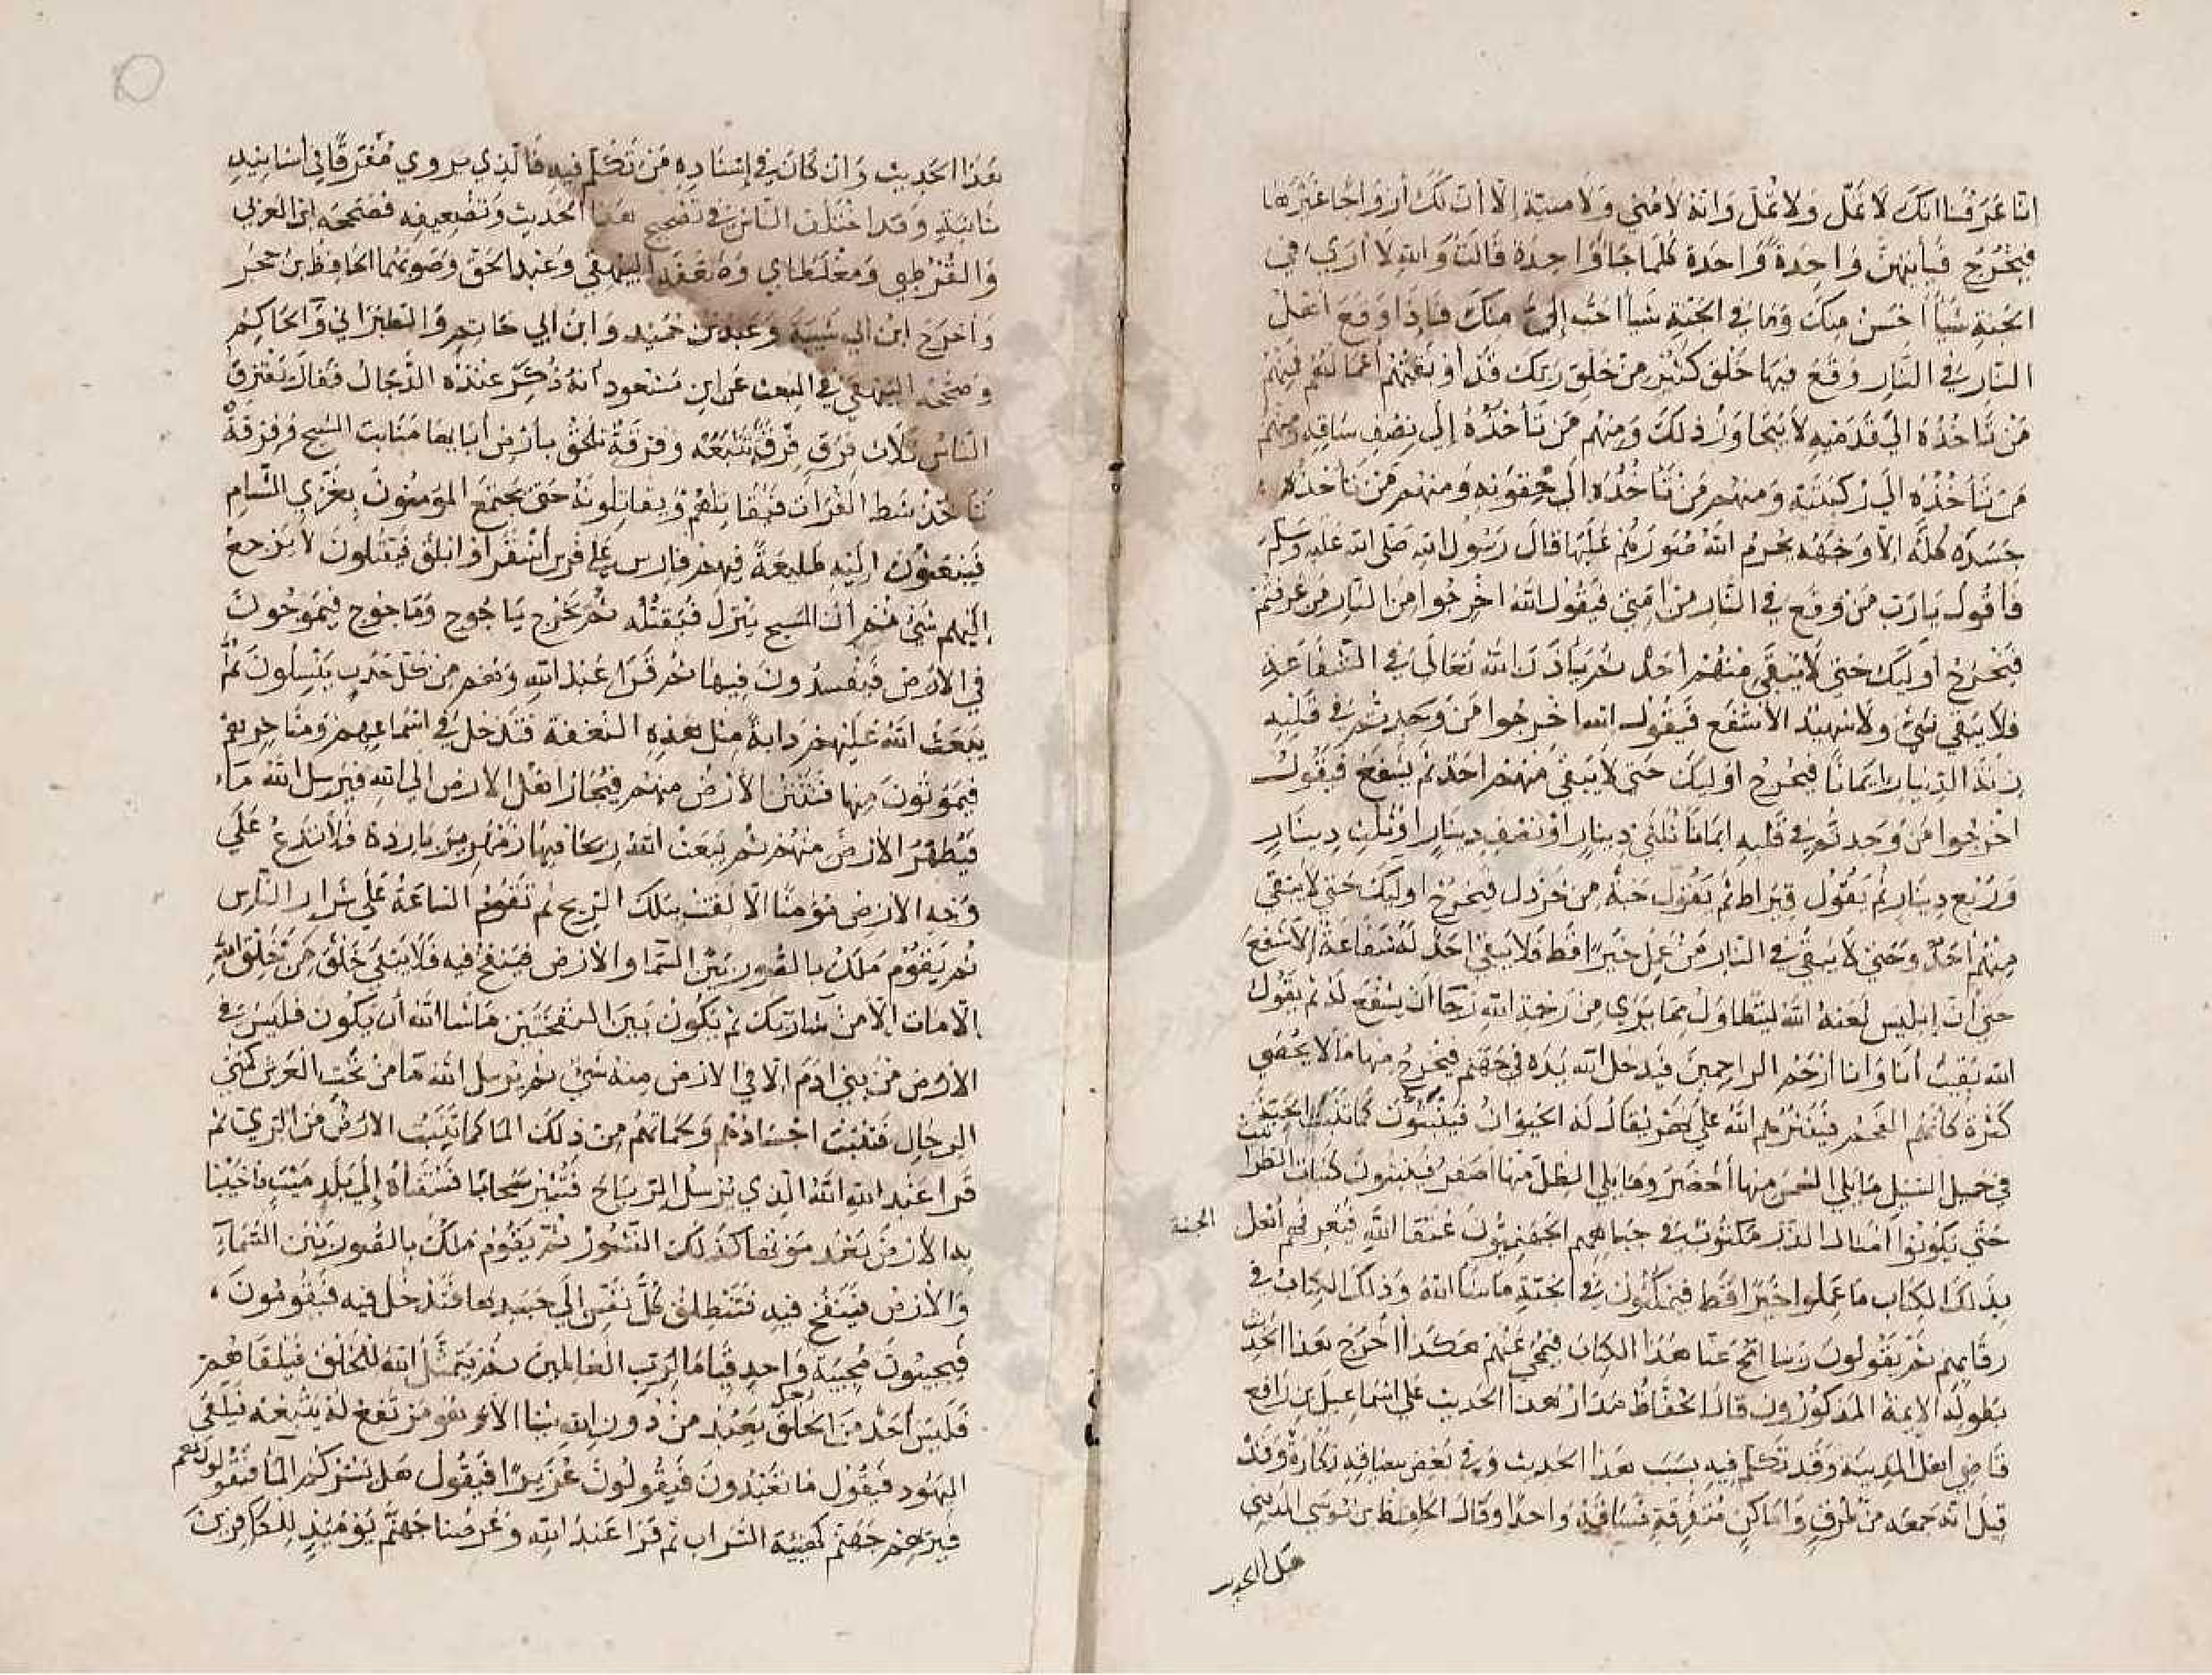 انا عرفنا انك لا تمل ولا تمل وانه لا مني ولا منية الا أن لك أزواجا غيرها
فيخرج فيأتيهن واحدة واحدة كلما جاء واحدة قالت والله لا أرى في
الجنة شيأ أحسن منك وما في الجنة شيأ احب إلي منك فاذا وقع أهل
النار في النار وقع فيها خلق كثير من خلق ربك قد أوبقتهم أعمالهم فمنهم
من تاخذه الى قدميه لا يتجاوز ذلك ومنهم من تأخذه إلى نصف ساقيه ومنهم
من تأخذه الى ركبتيه ومنهم من تأخذه الى حقويه ومنهم من تأخذه
جسده كله الا وجهه يحرم الله صورهم عليها قال رسول الله صلى الله عليه وسلم
فأقول يا رب من وقع في النار من امتي فيقول الله اخرجوا من النار من عرفتم
فيخرج أوليك حتى لا يبقى منهم أحد ثم يأذن الله تعالى في الشفاعة
فلا يبقى نبي ولا شهيد الا شفع فيقول الله اخرجوا من وجدتم في قلبه
زنة الدينار ايمانا فيخرج اوليك حتى لا يبقى منهم احد ثم يشفع فيقول
اخرجوا من وجدتم في قلبه ايمانا ثلثي دينار او نصف دينار او ثلث دينار
وربع دينار ثم يقول قيراط ثم يقول حبة من خردل فيخرج اوليك حتى لا يبقى
منهم أحد وحتى لا يبقى في النار من عمل خيرا قط فلا يبقى احد له شفاعة الا شفع
حتى أن إبليس لعنه الله ليتطاول مما يرى من رحمة الله رجا ان يشفع له ثم يقول
الله بقيت أنا وانا ارحم الراحمين فيدخل الله يده في جهنم فيخرج منها ما لا يحصى
كثرة كأنهم الفحم فينثرهم الله على نهر يقال له الحيوان فينبتون كما تنبت الحبة
في حميل السيل ما يلي الشمس منها أخضر وما يلي الظل منها أصفر فينبتون كنبات الطرا ثيث
حتى يكونوا امثال الذر مكتوب في جباههم الجهنميون عتقا الله فيعرفهم أهل الجنة
بذلك الكتاب ما عملوا خيرا قط فيمكثون في الجنة ما شا الله وذلك الكتاب في
رقابهم ثم يقولون ربنا امح عنا هذا الكتاب فيمحي عنهم هكذا أخرج هذا الحديث
بطوله الايمة المذكورون قال الحفاظ مدار هذا الحديث على اسماعيل بن رافع
قاضي اهل المدينة وقد تكلم فيه بسبب هذا الحديث وفي بعض سياقه نكارة وقد
قيل انه جمعه من طرق واماكن متفرقة فساقه واحدا وقال الحافظ بن موسى المديني
هذا الحديث وان كان في إسناده من تكلم فيه فالذي يروي مفرقا في أسانيد
ثابتة وقد اختلف الناس في تصحيح هذا الحديث وتضعيفه فصححه ابن العربي
والقرطبي ومغلطاي وضعفه البيهقي وعبد الحق وصوبهما الحافظ بن حجر
وأخرج ابن ابي شيبة وعبد بن حميد وابن ابي حاتم والطبراني والحاكم
وصححه البيهقي في البعث عن ابن مسعود انه ذكر عنده الدجال فقال يفترق
الناس ثلاث فرق فرقة تتبعه وفرقة تلحق بأرض أبايها منابت الشيح وفرقة
تأخذ شط الفرات فيقاتلهم ويقاتلونه حتى يجتمع المؤمنون بغربي الشام
فيبعثون اليه طليعة فيهم فارس على فرس أشقر أو ابلق فيقتلون لا يرجع
إليهم شي ثم أن المسيح ينزل فيقتله ثم يخرج ياجوج وماجوج فيموجون
في الارض فيفسدون فيها ثم قرا عبد الله وهم من كل حدب ينسلون ثم
يبعث الله عليهم دابة مثل هذه النغفة فتدخل في اسماعهم ومناخرهم
فيموتون منها فتنتن الأرض منهم فيجار اهل الارض الى الله فيرسل الله ماء
فيطهر الارض منهم ثم يبعث الله ريحا فيها زمهرير باردة فلا تدع على
وجه الارض مؤمنا الا لفت بتلك الريح ثم تقوم الساعة على شرار الناس
ثم يقوم ملك بالصور بين السما والارض فينفخ فيه فلا يبقى خلق من خلق الله
الا مات الا من شا ربك ثم يكون بين النفختين ما شا الله أن يكون فليس في
الارض من بني ادم الا في الارض منه شي ثم يرسل الله ما من تحت العرش كمني
الرجال فتنبت اجسادهم ولحمانهم من ذلك الما كما تنبت الارض من الثرى ثم
قرا عبد الله الله الذي يرسل الرياح فتثير سحابا فسقناه إلى بلد ميت فاحيينا
به الارض بعد موتها كذلك النشور ثم يقوم ملك بالصور بين السماء
والارض فينفخ فيه فتنطلق كل نفس الى جسدها فتدخل فيه فيقومون
فيجيئون مجية واحد قياما لرب العالمين ثم يتمثل الله للخلق فيلقاهم
فليس أحد من الخلق يعبد من دون الله شيا الا وهو مرتفع له يتبعه فيلقى
اليهود فيقول ما تعبدون فيقولون عزيرا فيقول هل يسركم الما فيقولون نعم
فيريهم جهنم كهيئة السراب ثم قرا عبد الله وعرضنا جهنم يومئذ للكافرين